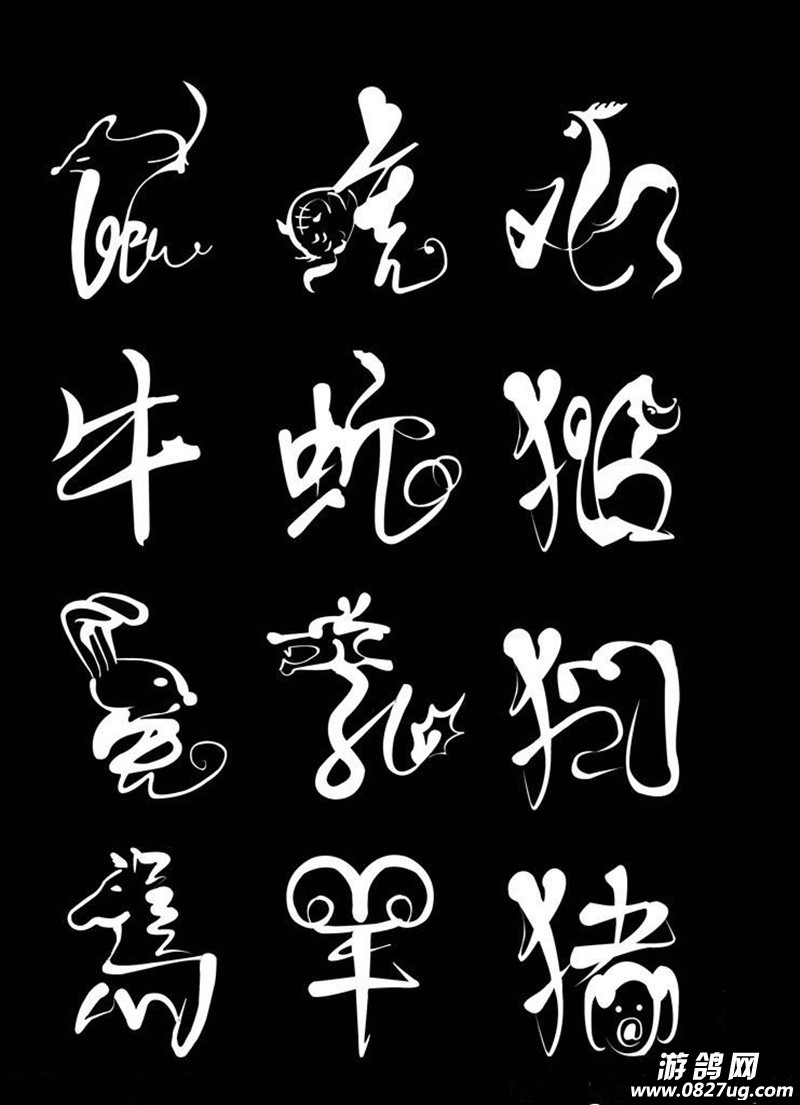 鼠 虎 鸡
牛 蛇 猴
兔 龙 狗
馬 羊 猪
游鸽网
www.0827ug.com